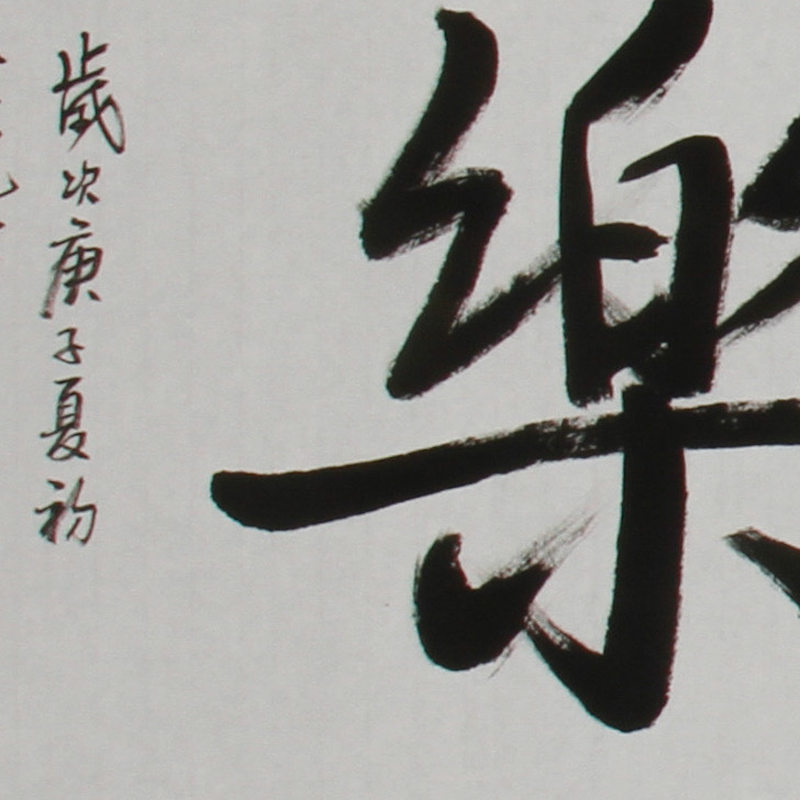 樂
歲次庚子夏初